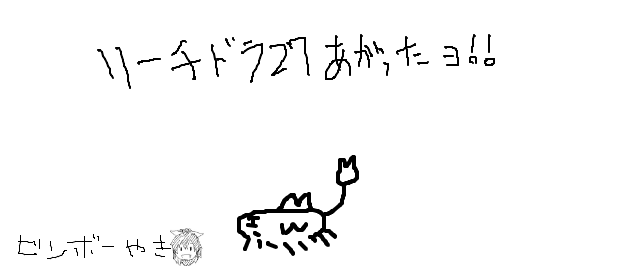 リーチドラ27あがったヨ!!
ビンボーやき